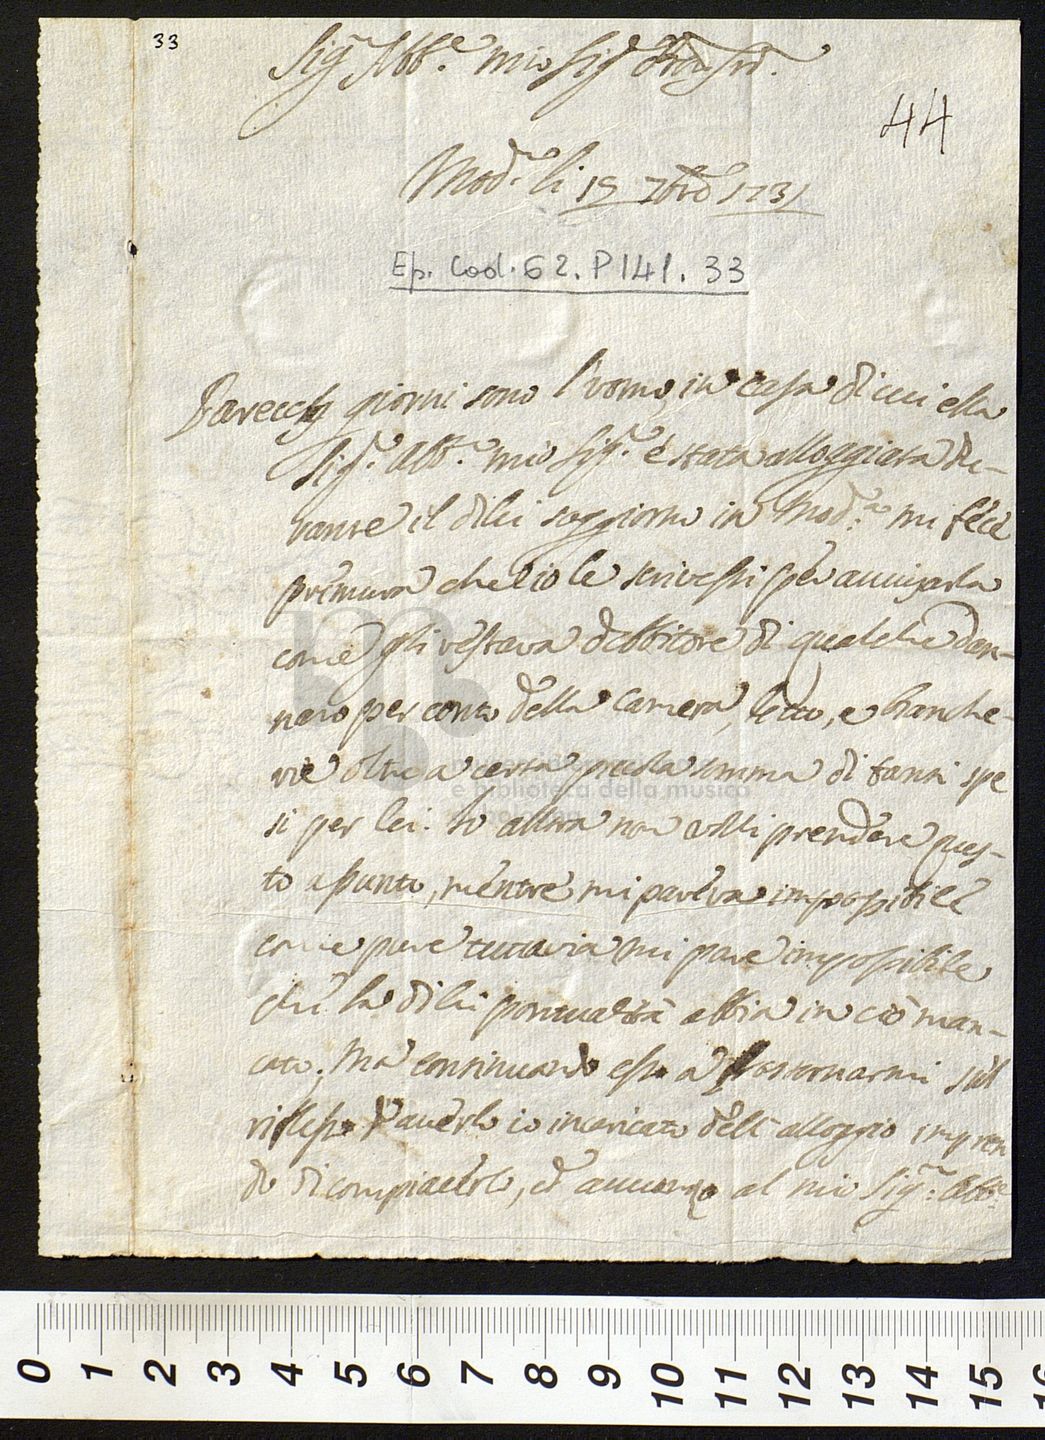 33
Sig.r Abb.e mio Sig.r
44
Mod.a li 15 7bre 1731
Ep. Cod. 62. P141. 33
Parecchi giorni sono l'uomo, in casa di cui ella
Sig.r Abb.e mio Sig.re è stata alloggiata du-
rante il di lei soggiorno in Mod.a mi fece
premura che io le scrivessi per avvisarla
come gli restava debbitore di qualche dan-
naro per conto della Camera, letto, e bianche-
rie oltre a certa piccola somma di danari spe
si per lei. Io allora non volli prendere ques-
to assunto, mentre mi pareva impossibile
come pure tuttavia mi pare impossibile
che la di lei pontualità abbia in ciò man-
cato; Ma continuando esso a frastornarmi sul
riflesso d'averlo io incaricato dell'alloggio impren
do di compiacerlo, ed avvanzo al mio Sig.r Abb.e
museo internazionale
e biblioteca della musica
di bologna
0 1 2 3 4 5 6 7 8 9 10 11 12 13 14 15